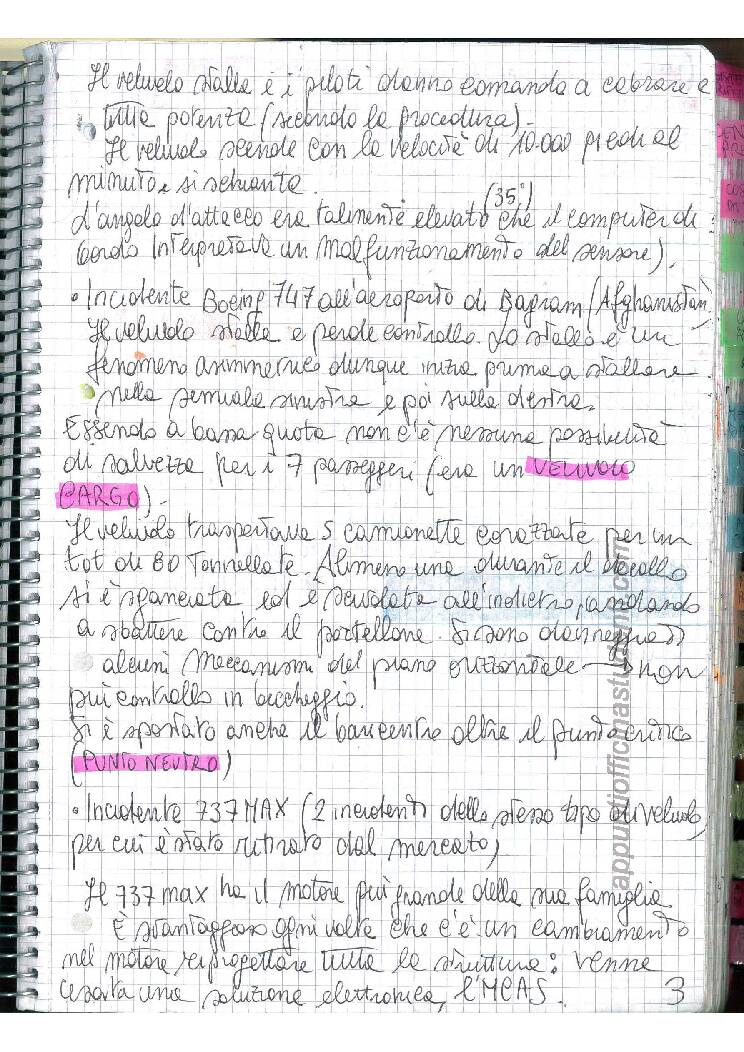 Il velivolo stalla e i piloti danno comando a cabrare e
tutta potenza (secondo la procedura).
Il velivolo scende con la velocità di 10.000 piedi al
minuto e si schianta.
(35°)
L'angolo d'attacco era talmente elevato che il computer di
bordo interpretava un malfunzionamento del sensore).
• Incidente Boeing 747 all'aeroporto di Bagram (Afghanistan)
Il velivolo stalla e perde controllo. Lo stallo è un
fenomeno asimmetrico dunque inizia prima a stallare
nella semiala sinistra e poi sulla destra.
Essendo a bassa quota non c'è nessuna possibilità
di salvezza per i 7 passeggeri (era un VELIVOLO
CARGO).
Il velivolo trasportava 5 camionette corazzate per un
tot di 80 tonnellate. Almeno una durante il decollo
si è sganciata ed è scivolata all'indietro, andando
a sbattere contro il portellone. Si sono danneggiati
alcuni meccanismi del piano orizzontale → non
più controllo in beccheggio.
Si è spostato anche il baricentro oltre il punto critico
(PUNTO NEUTRO)
• Incidente 737 MAX (2 incidenti dello stesso tipo di velivolo,
per cui è stato ritirato dal mercato)
Il 737 max ha il motore più grande della sua famiglia.
È svantaggioso ogni volta che c'è un cambiamento
nel motore riprogettare tutta la struttura: venne
cercata una soluzione elettronica, l'MCAS.
3
appuntiofficinastudenti.com